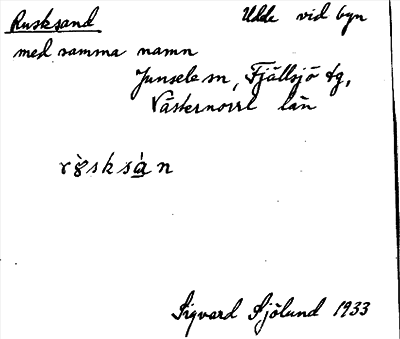 Rusksand Udde vid byn
med samma namn
Junsele sn, Fjällsjö tg,
Västernorrl län
Sigvard Sjölund 1933